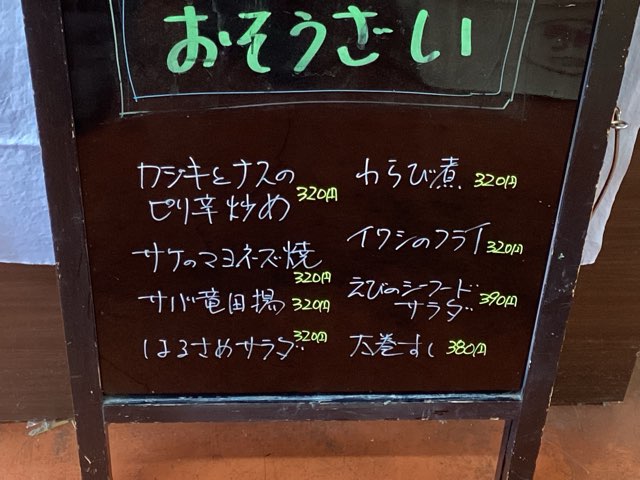 おそうざい
カジキとナスの
ピリ辛炒め 320円
サケのマヨネーズ焼
320円
サバ竜田揚 320円
はるさめサラダ 320円
わらび煮 320円
イワシのフライ 320円
えびのシーフード
サラダ 390円
太巻すし 380円